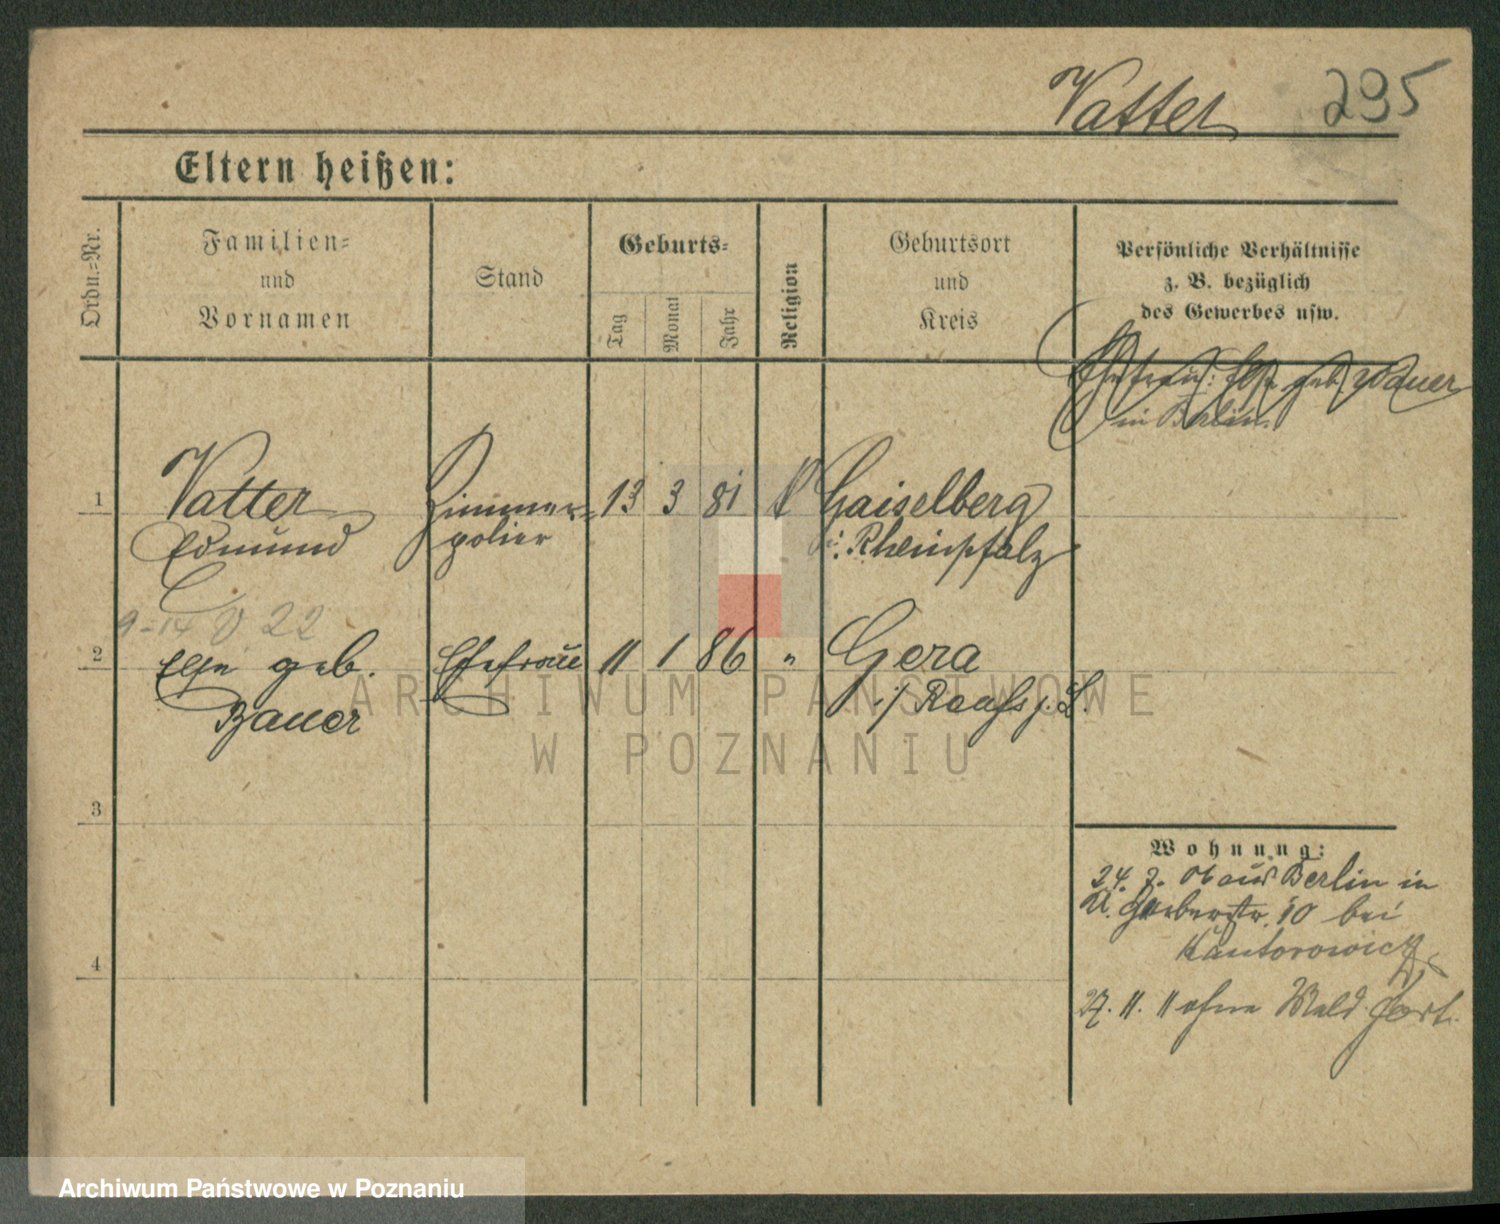 Vatter 295
Eltern heißen:
Ordn.-Nr.
Familien-
und
Vornamen
Stand
Geburts-
Tag
Monat
Jahr
Religion
Geburtsort
und
Kreis
Persönliche Verhältnisse
z. B. bezüglich
des Gewerbes usw.
Ehefrau: Else geb. Bauer
in Berlin.
1 Vatter Zimmer- 13 3 81 Gaiselberg
Edmund polier Rheinpfalz
22
2 Else geb. Ehefrau 11 1 86 " Gera
Bauer i/
3
4
Wohnung:
24. aus Berlin in
Gerberstr. 10 bei
Kantorowicz
27. 11. 11 ohne Meld. fort.
ARCHIWUM PAŃSTWOWE
W POZNANIU
Archiwum Państwowe w Poznaniu